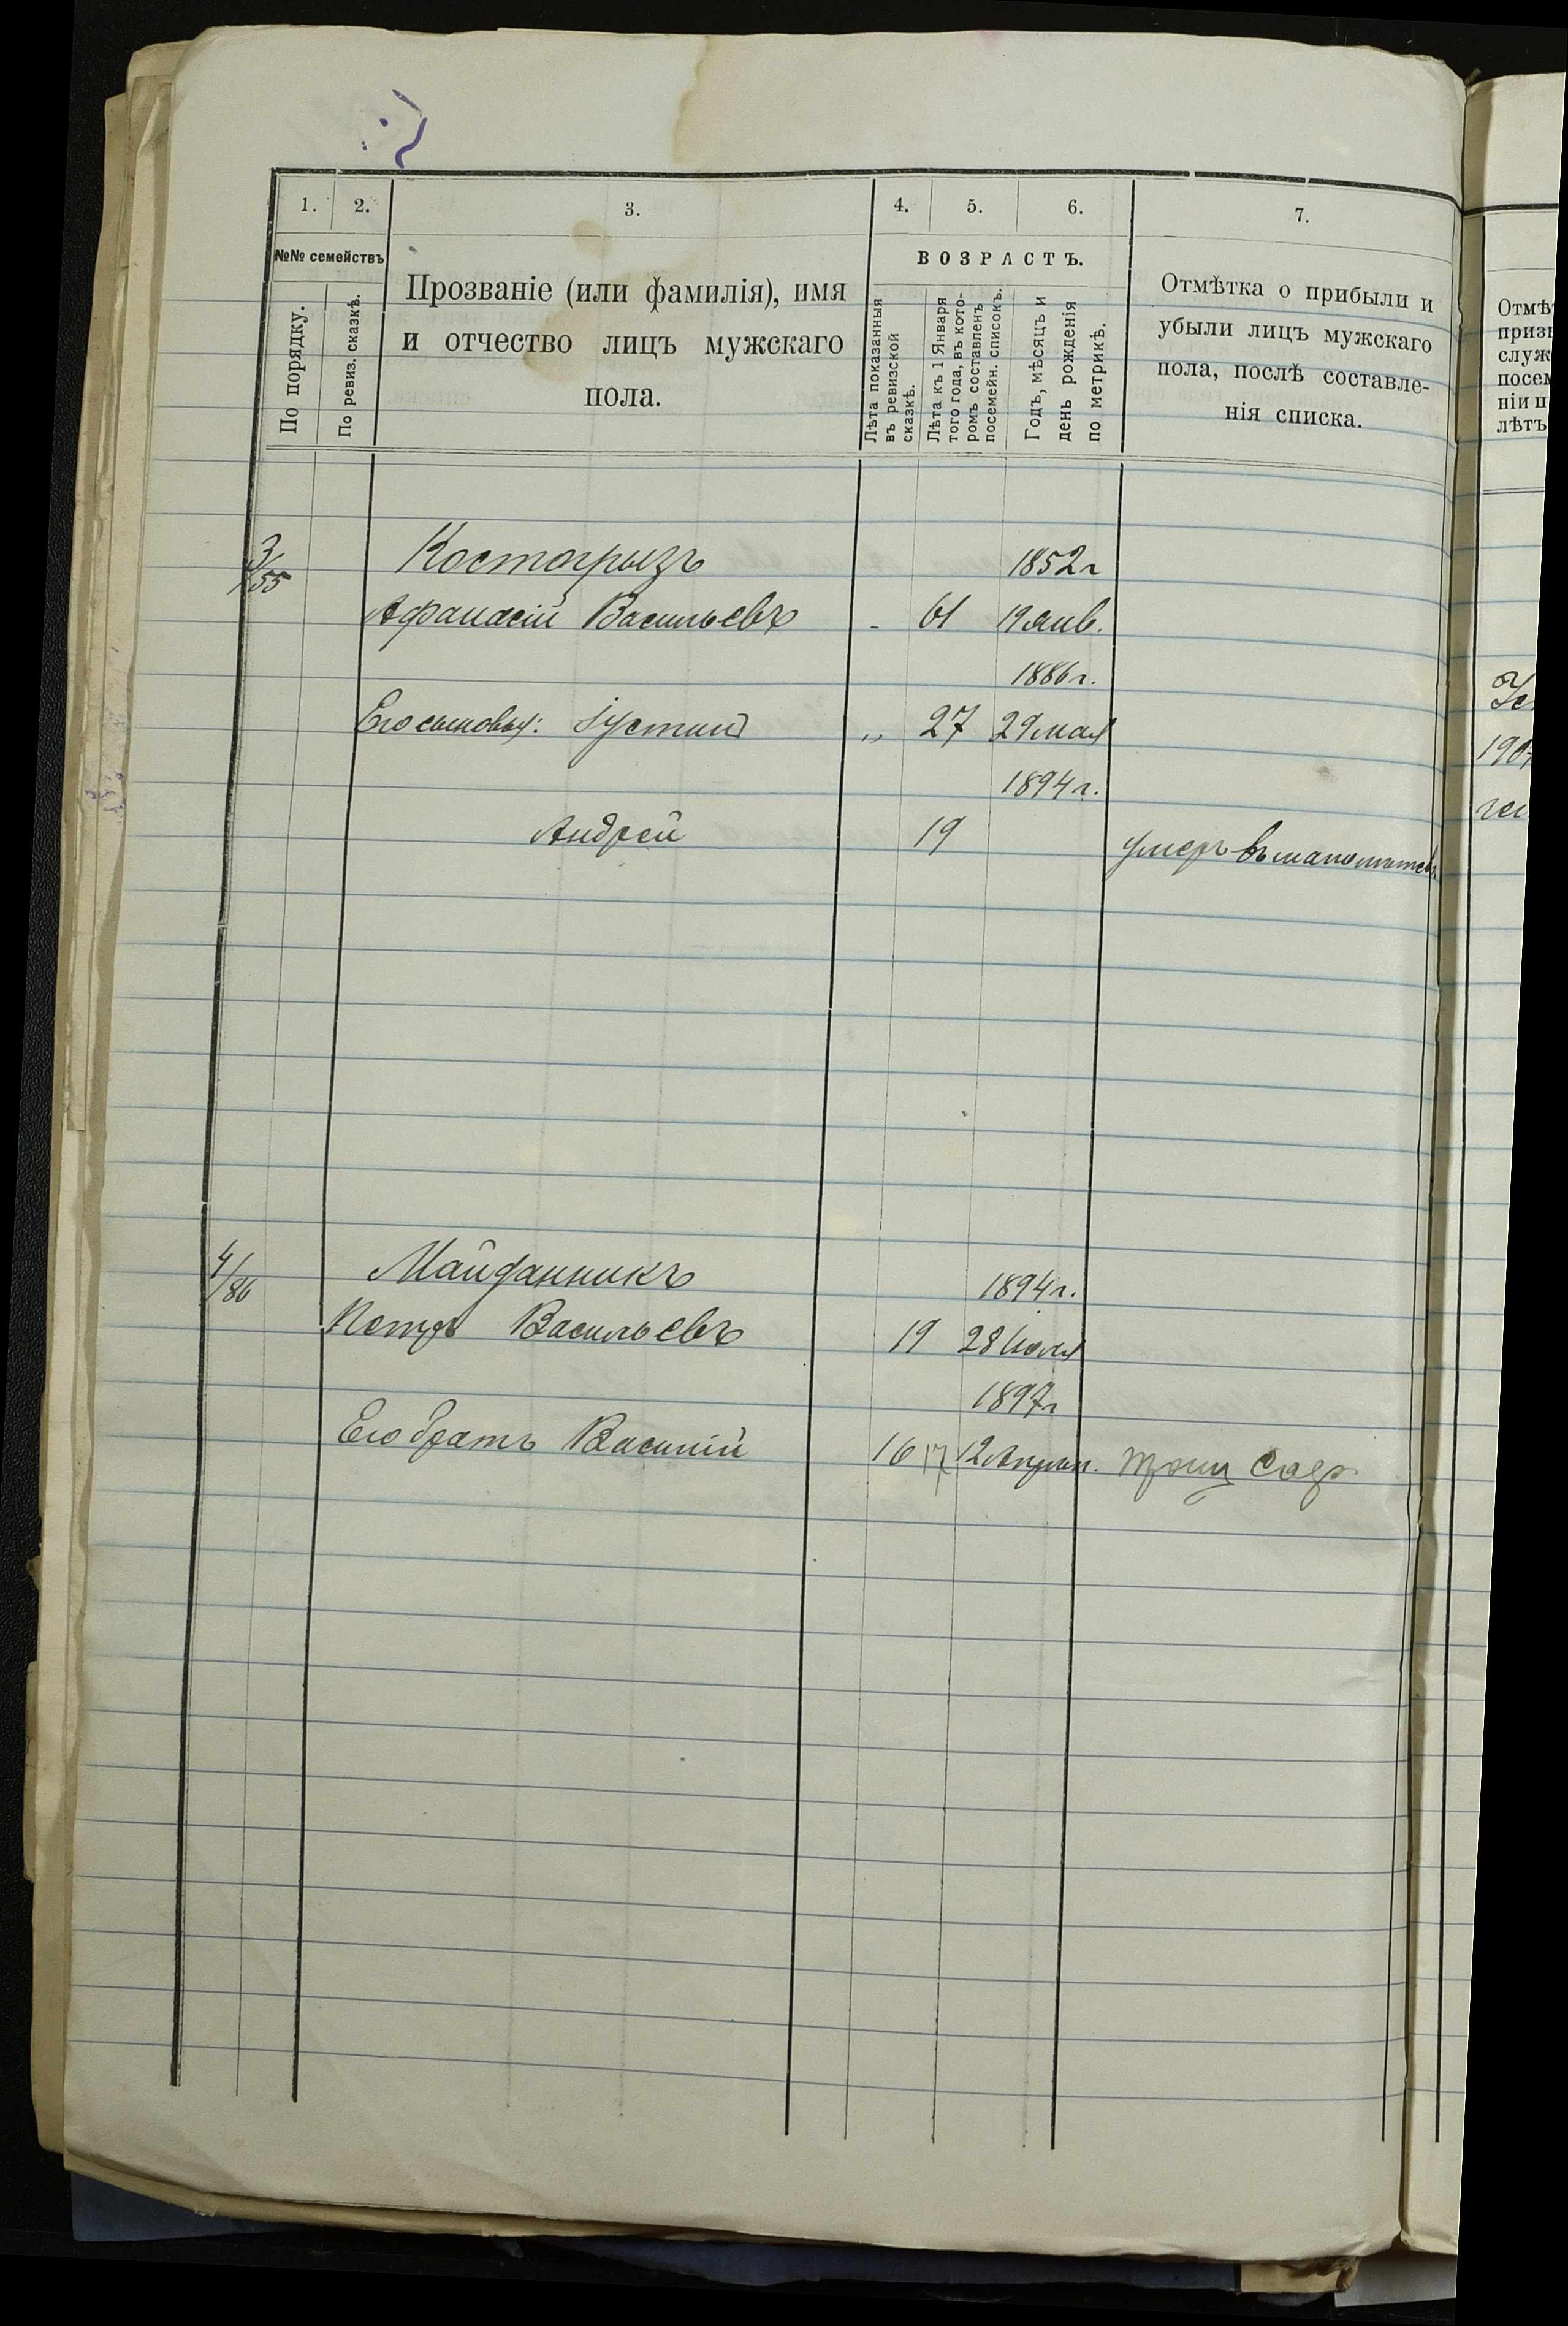 1. 2. 3. 4. 5. 6. 7.
№№ семействъ
По порядку.
По ревиз. сказкѣ.
Прозваніе (или фамилія), имя
и отчество лицъ мужскаго
пола.
ВОЗРАСТЪ.
Лѣта показанныя
въ ревизской
сказкѣ.
Лѣта къ 1 Января
того года, въ кото-
ромъ составленъ
посемейн. списокъ.
Годъ, мѣсяцъ и
день рожденія
по метрикѣ.
Отмѣтка о прибыли и
убыли лицъ мужскаго
пола, послѣ составле-
нія списка.
3/55 Костогрызъ 1852 г
Афанасій Васильевъ - 61 19 янв.
1886 г.
Его сыновья: Іустинъ „ 27 29 мая
1894 г.
Андрей 19 умеръ въ
4/86 Майданникъ 1894 г.
Петръ Васильевъ 19 28 Іюля
1897 г
Его братъ Василій 16 17 12 Апрѣл.
Отмѣ
приз
служ
посем
ніи п
лѣтъ
190